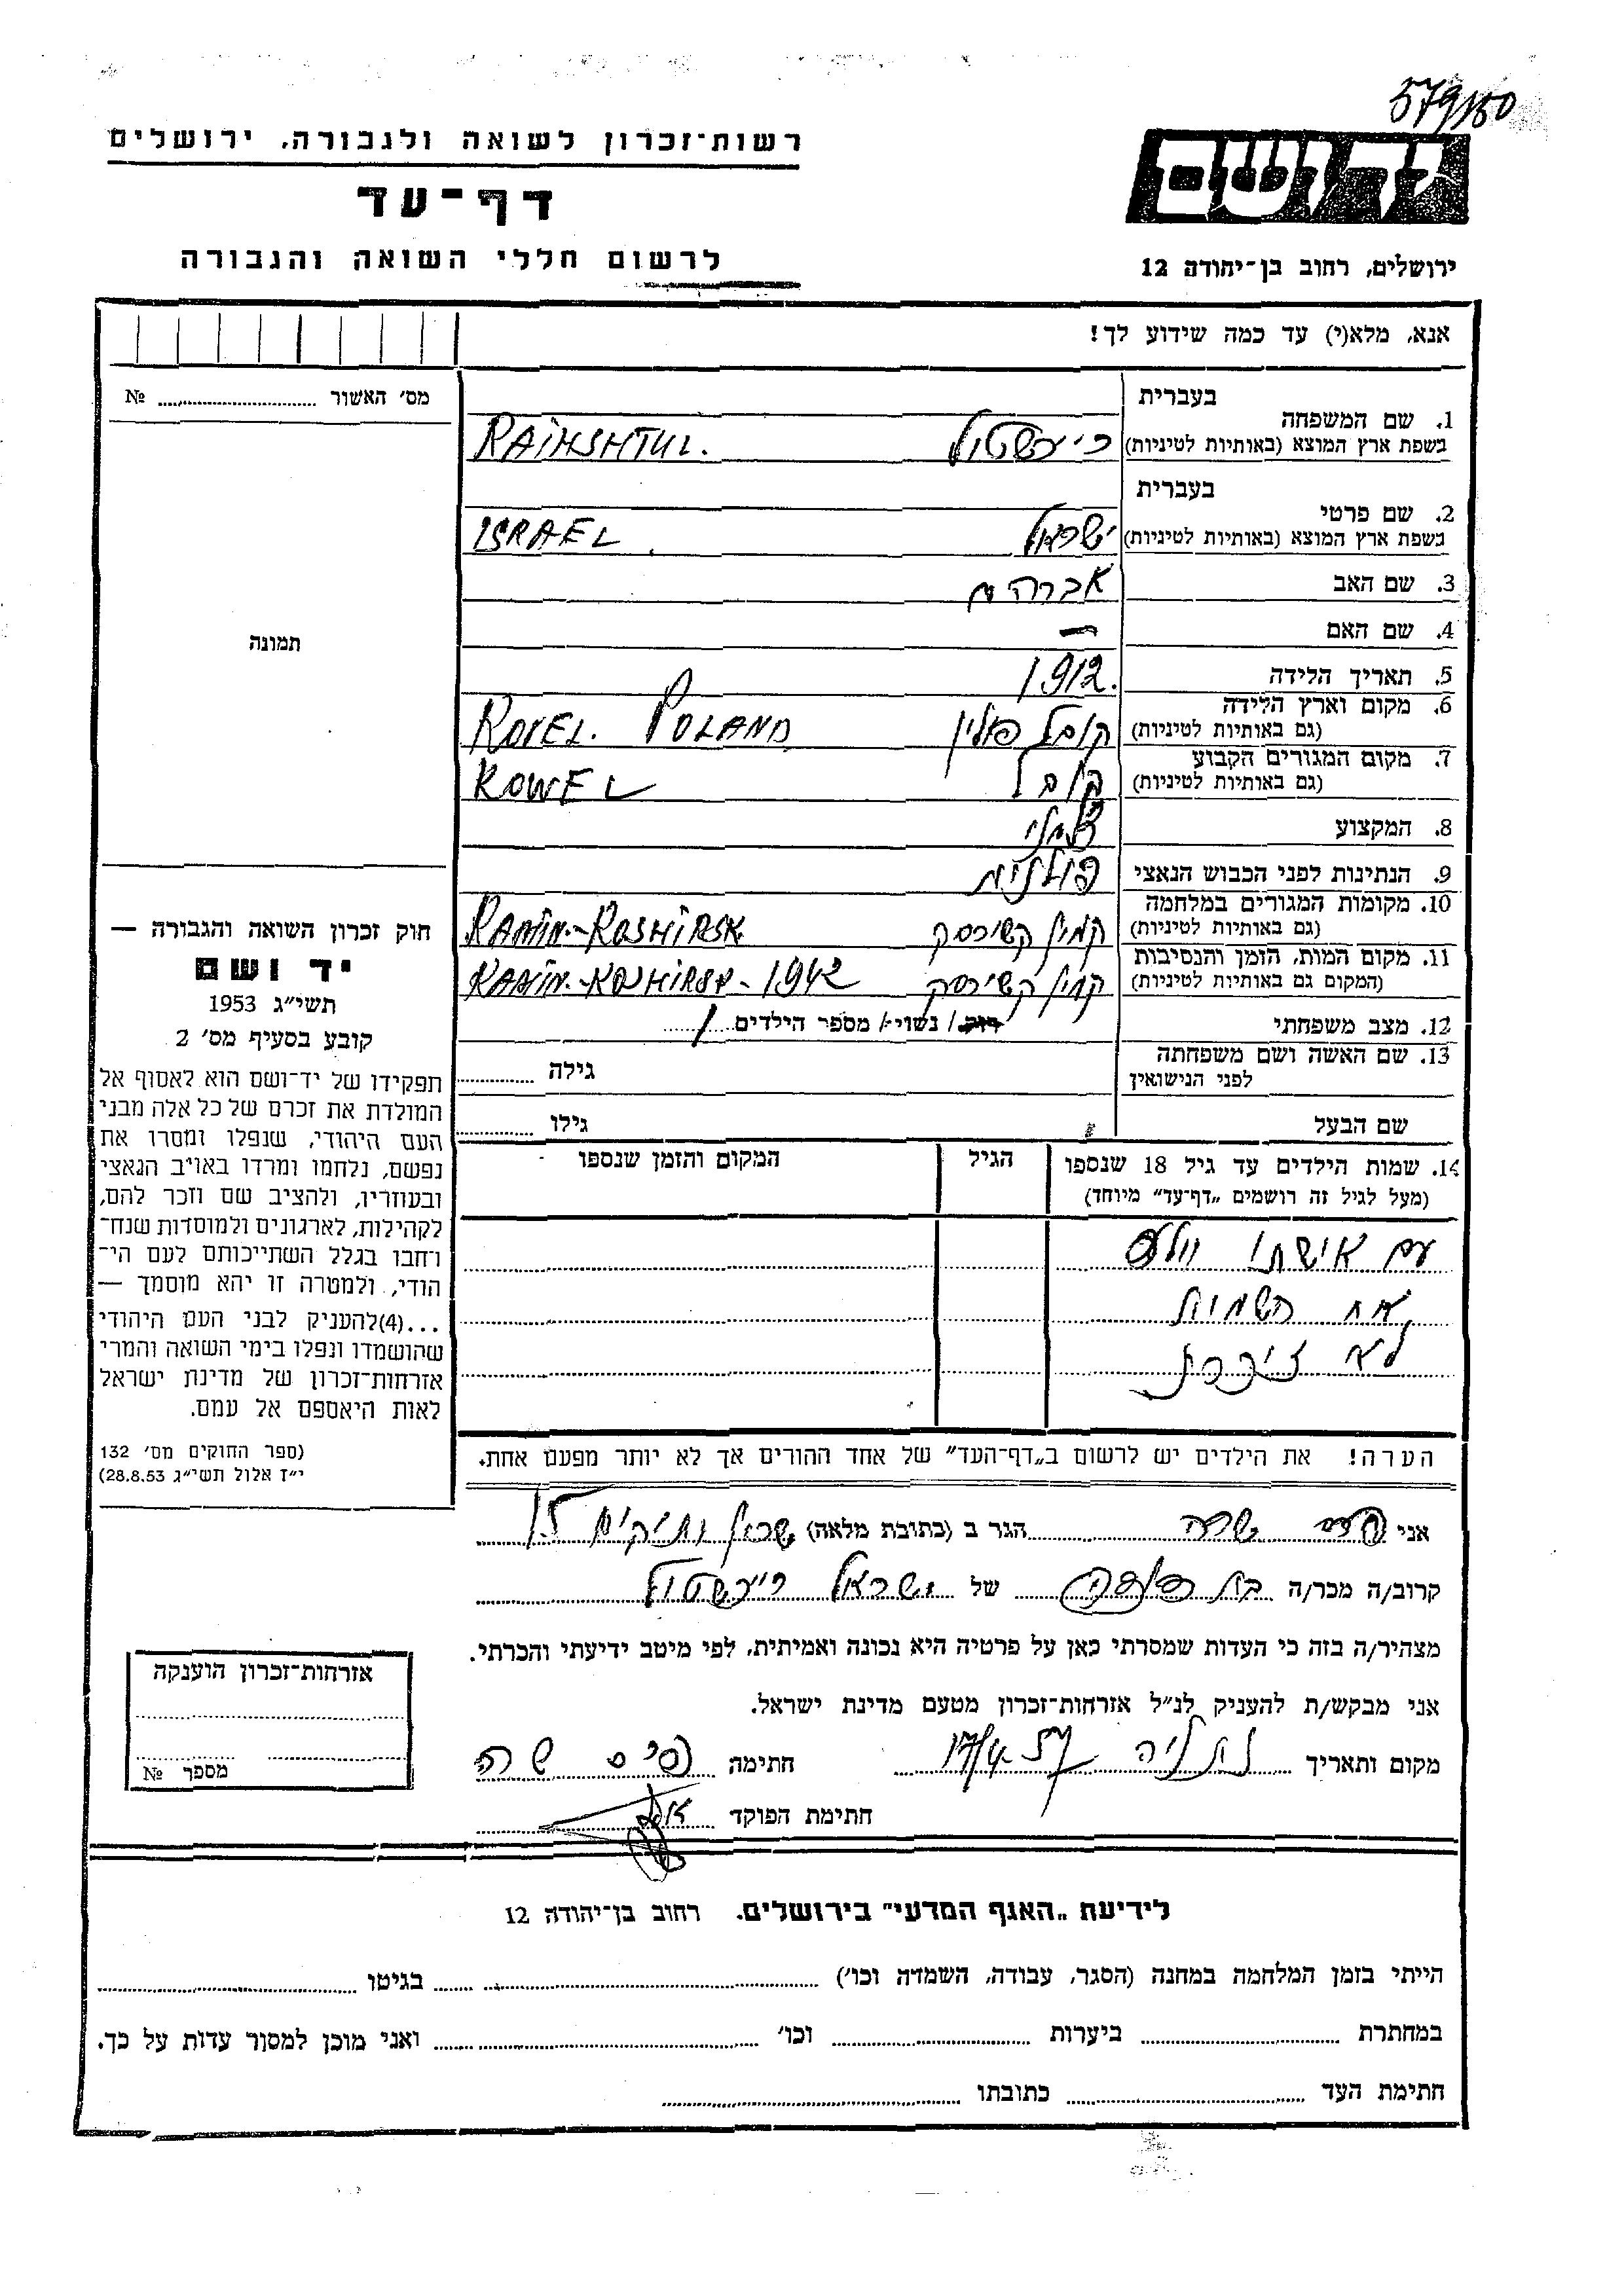 579/150
רשות־זכרון לשואה ולגבורה, ירושלים
דף־עד
לרשום חללי השואה והגבורה
ירושלים, רחוב בן־יהודה 12
אנא, מלא(י) עד כמה שידוע לך!
מס׳ האשור № 
תמונה
בעברית
1. שם המשפחה
בשפת ארץ המוצא (באותיות לטיניות) רייכשטול RAIHSHTUL.
בעברית
2. שם פרטי
בשפת ארץ המוצא (באותיות לטיניות) ישראל ISRAEL
3. שם האב אברהם
4. שם האם —
5. תאריך הלידה 1912.
6. מקום וארץ הלידה
(גם באותיות לטיניות) קובל פולין KOVEL. POLAND
7. מקום המגורים הקבוע
(גם באותיות לטיניות) קובל KOWEL
8. המקצוע
9. הנתינות לפני הכבוש הנאצי פולנית
10. מקומות המגורים במלחמה
(גם באותיות לטיניות) קמין קשירסק KAMIN-KOSHIRSK
11. מקום המות, הזמן והנסיבות
(המקום גם באותיות לטיניות) קמין קשירסק 1942
12. מצב משפחתי רוק/ נשוי/ מספר הילדים 1
13. שם האשה ושם משפחתה
לפני הנישואין
גילה
שם הבעל גילו
14. שמות הילדים עד גיל 18 שנספו הגיל המקום והזמן שנספו
(מעל לגיל זה רושמים „דף־עד״ מיוחד)
עם אישתו וילד
את השמות
לא זוכרת
הערה! את הילדים יש לרשום ב„דף־העד״ של אחד ההורים אך לא יותר מפעם אחת.
חוק זכרון השואה והגבורה —
יד ושם
תשי״ג 1953
קובע בסעיף מס׳ 2
תפקידו של יד־ושם הוא לאסוף אל
המולדת את זכרם של כל אלה מבני
העם היהודי, שנפלו ומסרו את
נפשם, נלחמו ומרדו באויב הנאצי
ובעוזריו, ולהציב שם וזכר להם,
לקהילות, לארגונים ולמוסדות שנח־
רחבו בגלל השתייכותם לעם הי־
הודי, ולמטרה זו יהא מוסמך —
...(4)להעניק לבני העם היהודי
שהושמדו ונפלו בימי השואה והמרי
אזרחות־זכרון של מדינת ישראל
לאות היאספם אל עמם.
(ספר החוקים מס׳ 132
י״ז אלול תשי״ג 28.8.53)
אני שרה הגר ב (כתובת מלאה)
קרוב/ה מכר/ה בת של ישראל רייכשטול
מצהיר/ה בזה כי העדות שמסרתי כאן על פרטיה היא נכונה ואמיתית, לפי מיטב ידיעתי והכרתי.
אני מבקש/ת להעניק לנ״ל אזרחות־זכרון מטעם מדינת ישראל.
מקום ותאריך נתניה 17/4 57 חתימה שרה
חתימת הפוקד
אזרחות־זכרון הוענקה
מספר №
לידיעת „האגף המדעי״ בירושלים, רחוב בן־יהודה 12
הייתי בזמן המלחמה במחנה (הסגר, עבודה, השמדה וכו׳) בגיטו
במחתרת ביערות וכו׳ ואני מוכן למסור עדות על כך.
חתימת העד כתובתו